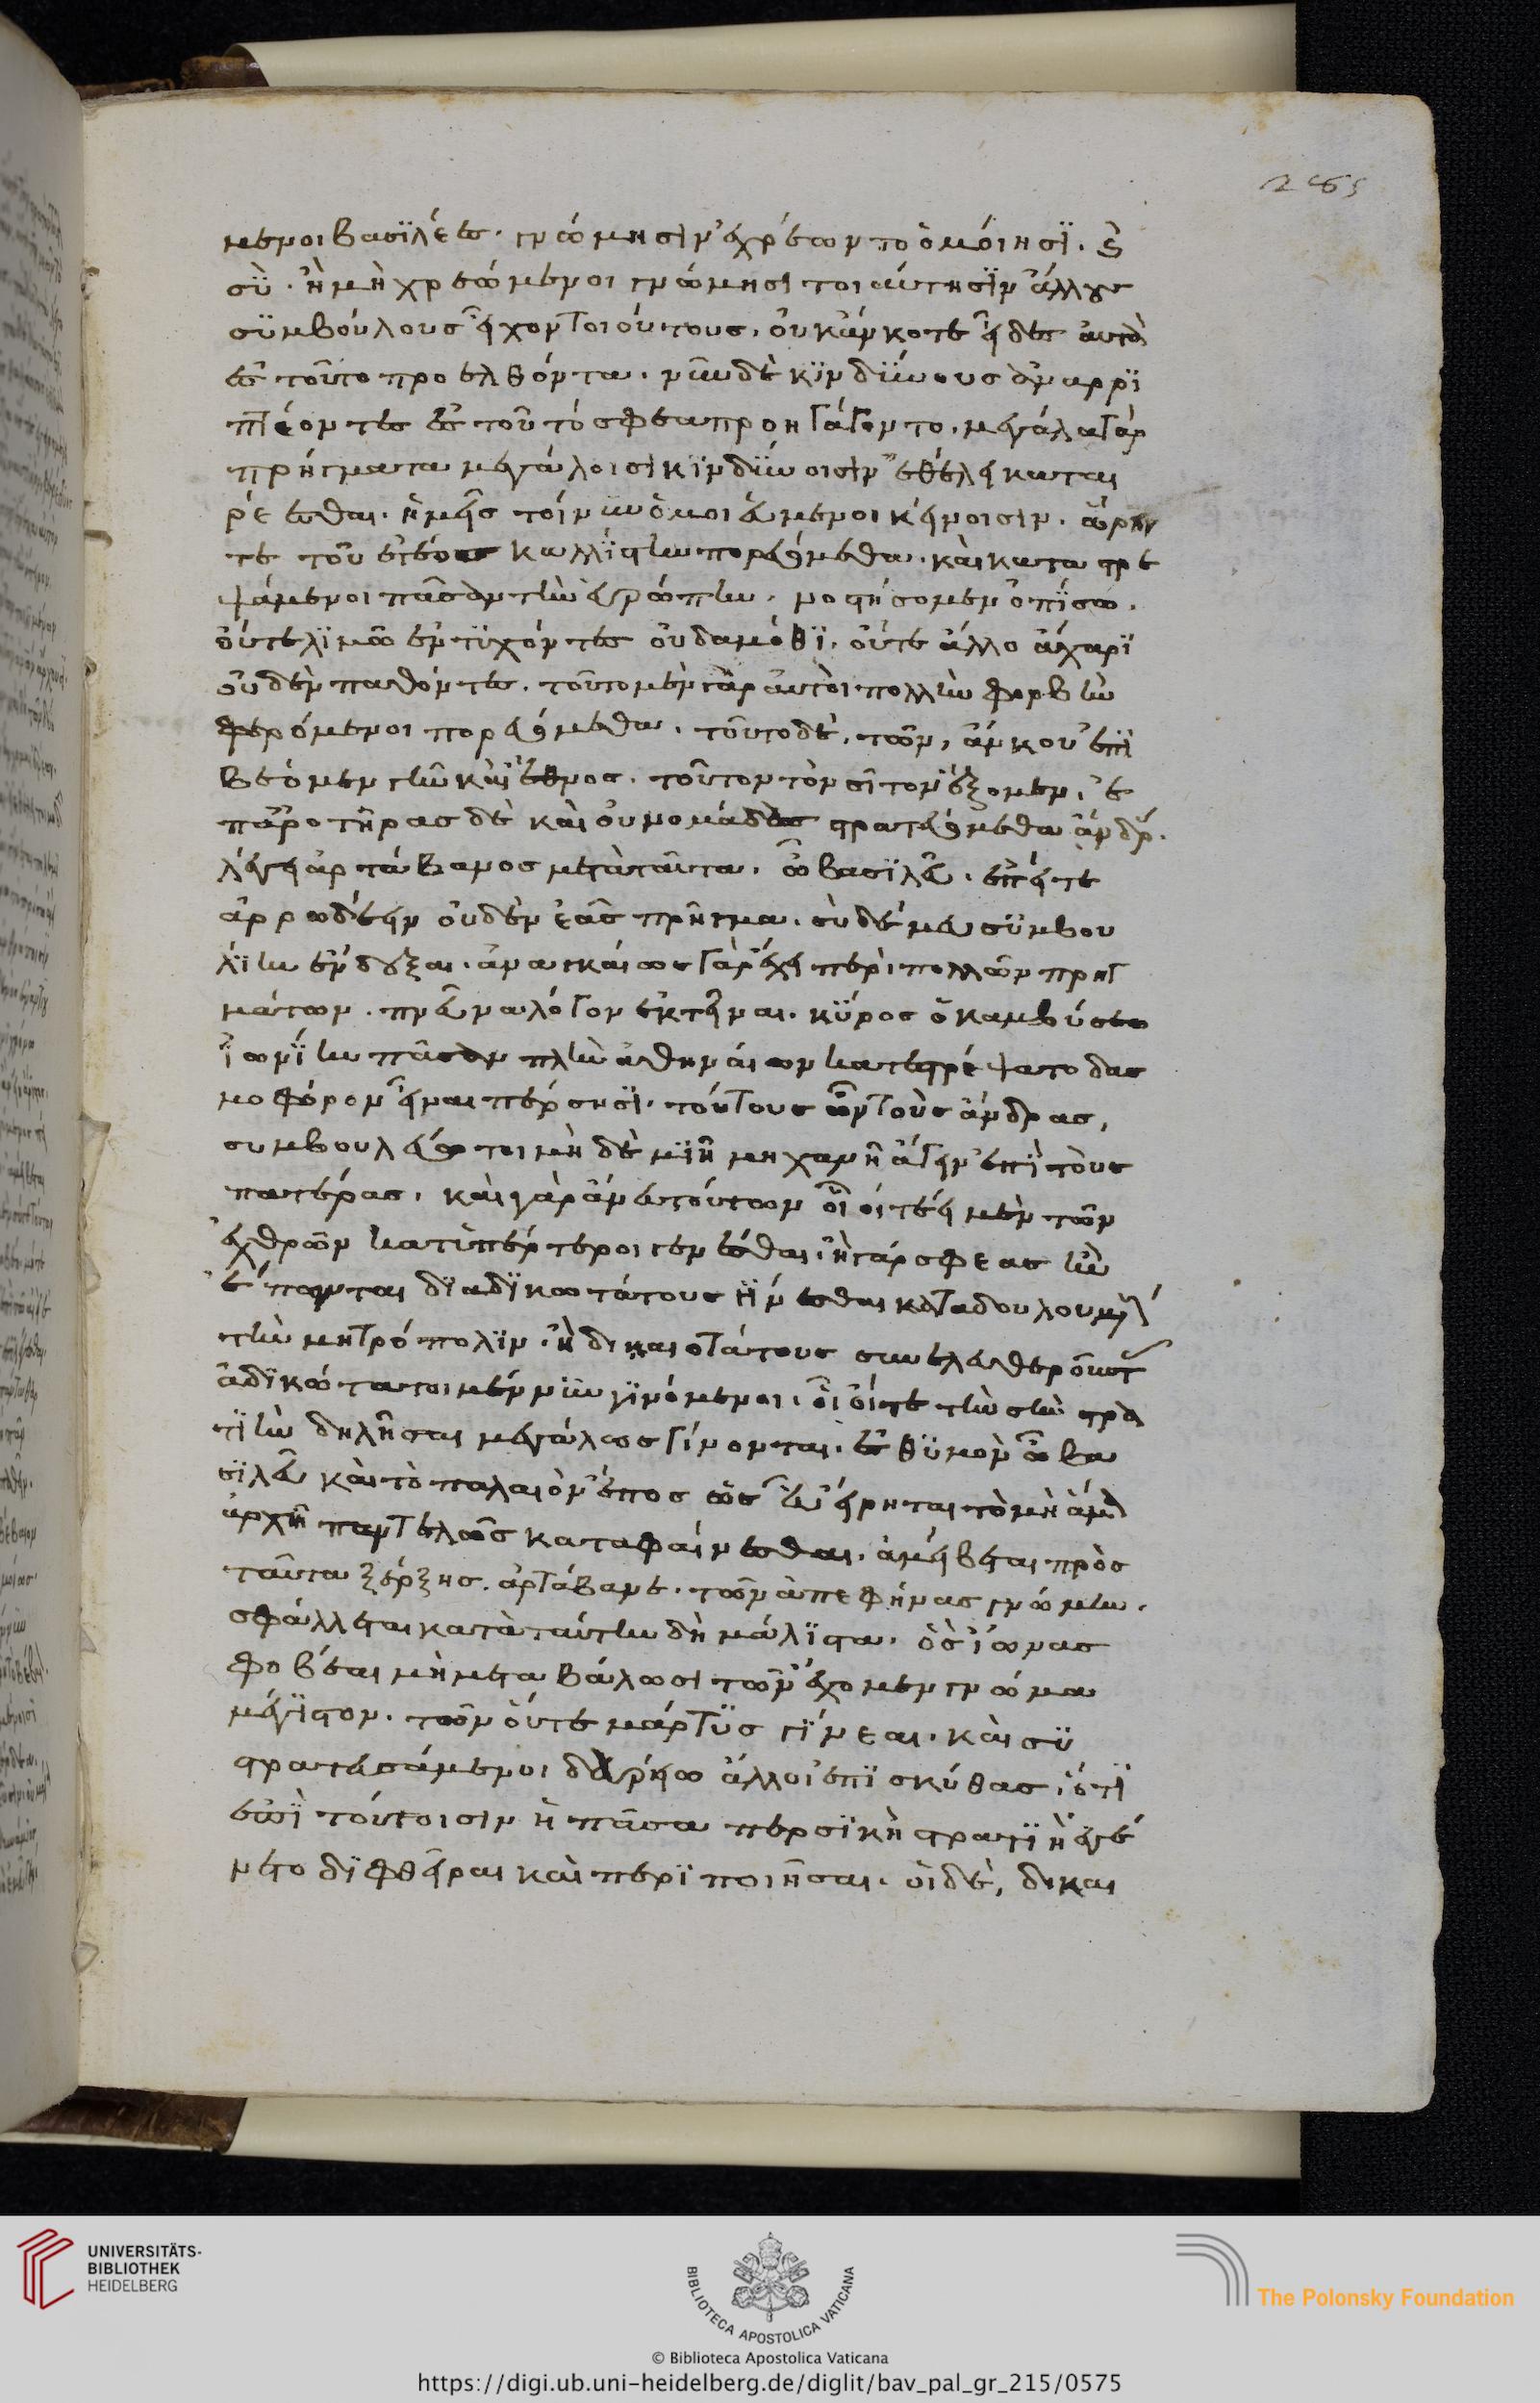 285
μενοι βασϊλέες. γνώμησϊν ἐχρέωντο ὁμοίησϊ. καὶ
σὺ. ἢ μὴ χρεώμενοι γνώμησι τοιαύτησϊν ἄλλους
σϋμβούλους εἶχον τοιούτους. οὐκ ἄν κοτε εἶδες αὐτὰ
ἐς τοῦτο προελθόντα. νῦν δὲ κϊνδϋνους ἀναρρϊ
πτέοντες ἐς τοῦτό σφεα προηγάγοντο. μεγάλα γὰρ
πρήγματα μεγάλοισι κϊνδϋνοισϊν ἐθέλει καται
ρέεσθαι. ἡμεῖς τοίνυν ὁμοιεύμενοι κείνοισιν. ὥρην
τε τοῦ ἔτεος καλλϊστην πορευόμεθα. καὶ καταστρε
ψάμενοι πᾶσαν τὴν εὐρώπην. νοστήσομεν ὀπϊσω.
οὔτε λϊμῶ ἐντϋχόντες οὐδαμόθϊ. οὔτε ἄλλο ἄχαρϊ
οὐδὲν παθόντες. τοῦτο μὲν γὰρ αὐτοὶ πολλὴν φορβὴν
φερόμενοι πορευόμεθα. τοῦτο δὲ, τῶν, ἄν κου ἐπϊ
βέομεν γῆν καὶ ἔθνος. τοῦτον τὸν σῖτον ἕξομεν. ἐ
π' ἀροτῆρας δὲ καὶ οὐ νομάδας στρατευόμεθα ἄνδρ.
λέγει ἀρτάβανος μετὰ ταῦτα. ὦ βασϊλεῦ. ἐπεί τε
ἀρρωδέειν οὐδὲν ἐᾶς πρῆγμα. σὺ δέ μευ σϋμβου
λϊην ἔνδεξαι. ἀναγκαίως γὰρ ἔχει περὶ πολλῶν πρηγ
μάτων. πλεῦνα λόγον ἐκτεῖναι. κῦρος ὁ καμβύσεω
ἰωνϊην πᾶσαν πλὴν ἀθηναίων κατεστρέψατο δασ
μοφόρον εἶναι πέρσησϊ. τούτους ὦν τοὺς ἄνδρας,
συμβουλεύω τοι μὴ δὲ μϊῆ μηχανῆ ἄγειν ἐπὶ τοὺς
πατέρας. καὶ γὰρ ἄνευ τούτων οἷοί τέ εἰμεν τῶν
ἐχθρῶν κατϋπέρτεροι γενέσθαι. ἢ γάρ σφεας ἢν
ἕπωνται δϊ ἀδϊκωτάτους γϊνεσθαι καταδουλουμέν
τὴν μητρόπολϊν. ἢ δικαιοτάτους συνελευθεροῦντ
ἀδϊκώτατοι μέν νϋν γϊνόμενοι. οἷοί τε τὴν σὴν στρα
τϊὴν δηλήσασθαι μεγάλως γίνονται. ἐς θϋμὸν ὦ βα
σϊλεῦ καὶ τὸ παλαιὸν ἔπος ὡς εὖ εἴρηται τὸ μὴ ἅμα
ἀρχῆ παντέλως καταφαίνεσθαι. ἀμείβεται πρὸς
ταῦτα ξέρξης. ἀρτάβανε. τῶν ἀπεφήναο γνώμην.
σφάλλεαι κατὰ ταύτην δὴ μάλϊστα. ὃς ἴωνας
φοβέεαι μὴ μεταβάλωσι τῶν ἔχομεν γνῶμα
μέγϊστον. τῶν σύ τε μάρτϋς γϊνεαι. καὶ οἱ συ
στρατευσάμενοι δαρείω ἄλλοι ἐπϊ σκύθας. ὅτϊ
ἐπϊ τούτοισιν ἡ πᾶσα περσϊκὴ στρατϊὴ ἐγέ
νετο δϊαφθεῖραι καὶ περϊποιῆσαι. οἱ δὲ, δικαι
UNIVERSITÄTS-
BIBLIOTHEK
HEIDELBERG
BIBLIOTECA APOSTOLICA VATICANA
The Polonsky Foundation
© Biblioteca Apostolica Vaticana
https://digi.ub.uni-heidelberg.de/diglit/bav_pal_gr_215/0575